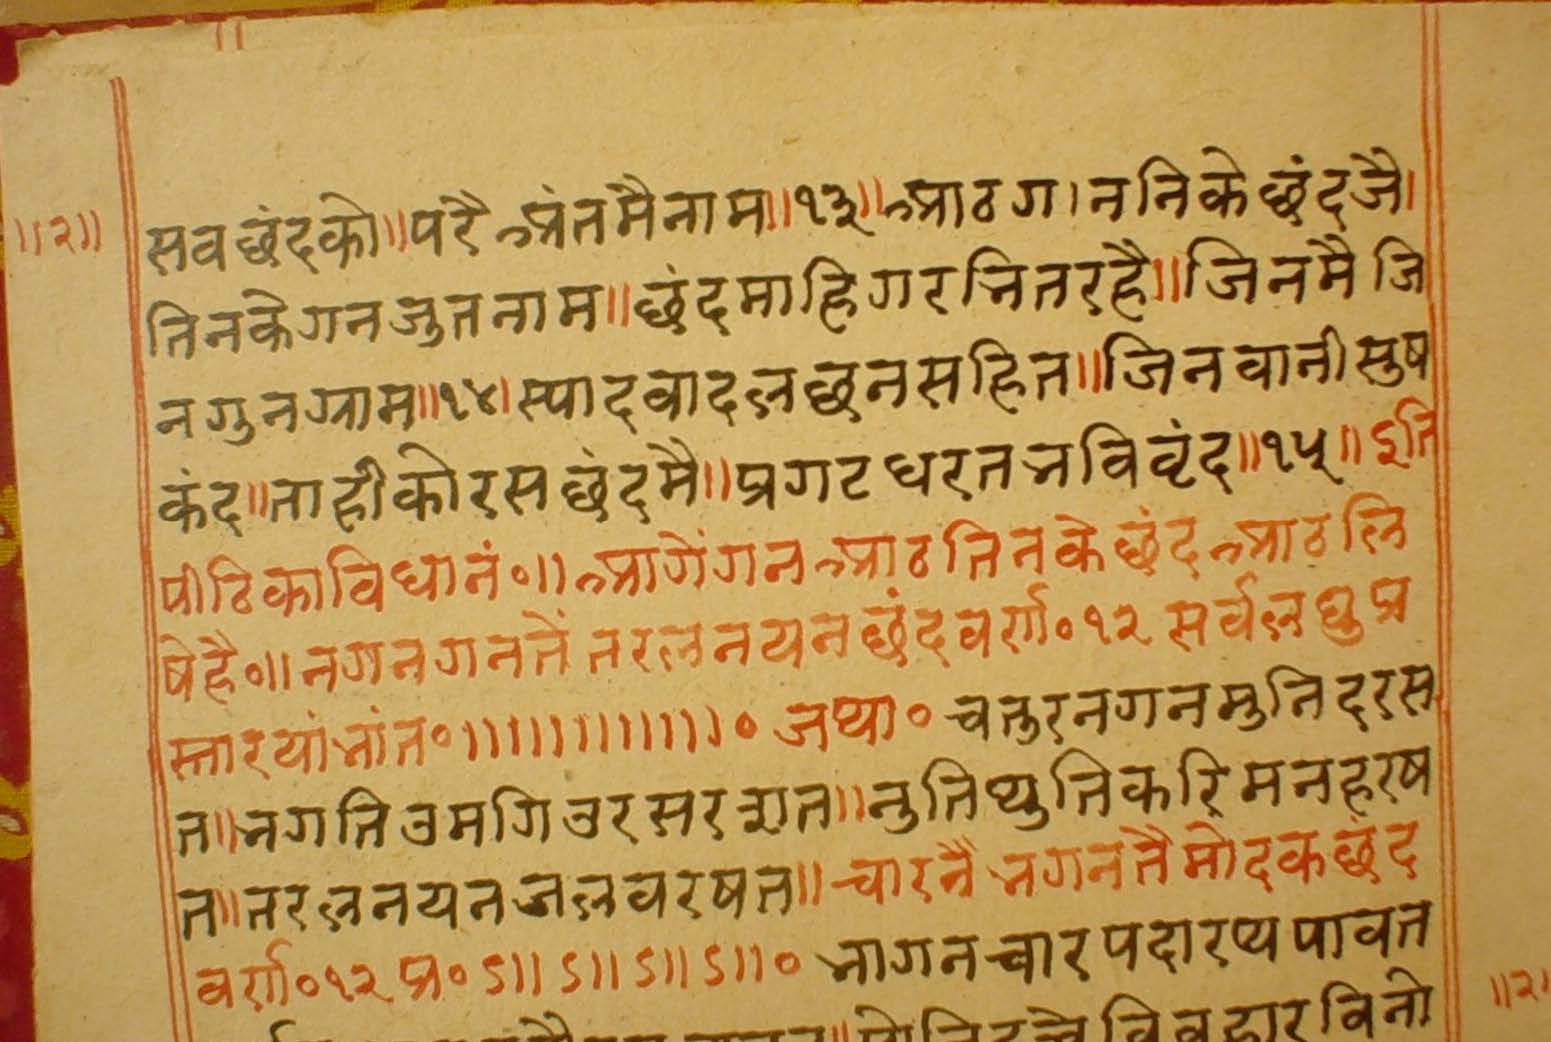 ॥२॥
सव छंदको॥परै अंतमैनाम॥१३॥आठ ग।ननिके छंद जै।
तिनके गन जुत नाम॥छंद माहि गरभित रहै॥जिनमै जि
न गुन ग्राम॥१४।स्यादवाद लछन सहित॥जिनवानी सुष
कंद॥ताहीको रस छंदमै॥प्रगट धरत भवि वृंद॥१५॥इति
पीठिका विधानं०॥आगें गन आठ तिनके छंद आठ लि
षे है०॥नगन गनतें तरलनयन छंद वर्ण०१२ सर्वलघु प्र
स्तार या भांत०।।।।।।।।।।।।० जथा० चतुर नगन मुनि दरस
त॥भगति उमगि उर सरसत॥नुति थुति करि मन हरष
त॥तरल नयन जल वरषत॥चार नै भगनतै मोदक छंद
वर्ण०१२ प्र० ऽ॥ ऽ॥ ऽ॥ ऽ॥० भागन चार पदारथ पावत
विवहार विनो
॥२॥